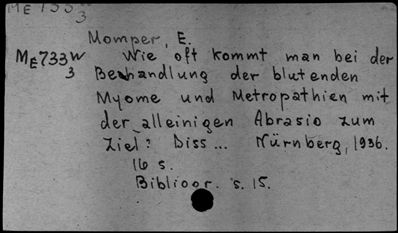 ME 733 W
3
Momper, E.
ME 733 W
3
Wie oft kommt man bei der
Behandlung der blutenden
Myome und Metropathien mit
der alleinigen Abrasio zum
Ziel? Diss... Nürnberg, 1936.
16 s.
Bibliogr. s. 15.